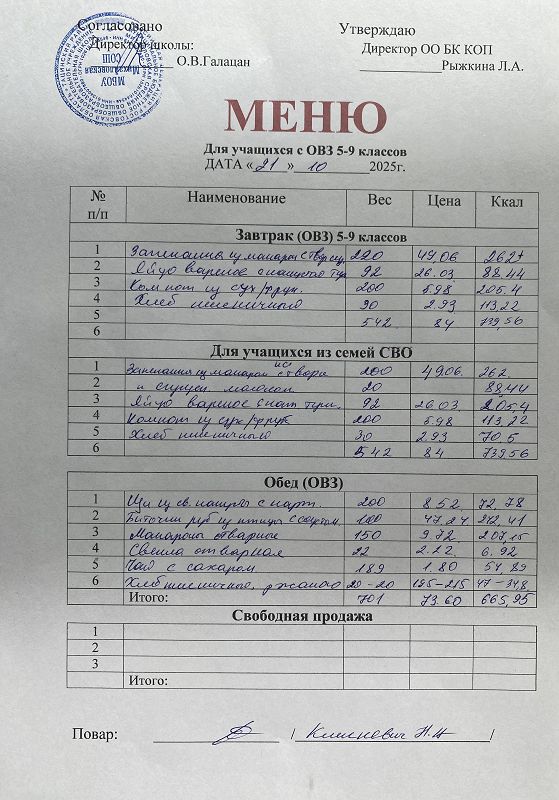 Согласовано Утверждаю
Директор школы: Директор ОО БК КОП
О.В.Галацан Рыжкина Л.А.
МБОУ
СОШ
МЕНЮ
Для учащихся с ОВЗ 5-9 классов
ДАТА «21» 10 2025г.
№ п/п Наименование Вес Цена Ккал
Завтрак (ОВЗ) 5-9 классов
1 Запеканка из макарон с твор 220 49.06 262
2 Яйцо вареное с капустой 92 26.03 88.44
3 Компот из сух/фрук. 200 5.98 205.4
4 Хлеб пшеничный 30 2.93 113,22
5 542 84 739,56
6
Для учащихся из семей СВО
1 Запеканка из макарон с твора 200 49.06. 262.
2 и сгущен. молоком 20 88,44
3 Яйцо вареное с кап туш. 92 26.03. 205.4
4 Компот из сух/фрук 200 5.98 113,22
5 Хлеб пшеничного 30 2.93 70.5
6 542 84 739.56
Обед (ОВЗ)
1 Щи из св. капусты с карт. 200 8.52. 72,78
2 Биточки руб из птицы с соусом. 100 47.24 242,41
3 Макароны отварные 150 9.72. 207,15
4 Свекла отварная 22 2.22. 6.92
5 Чай с сахаром 189 1.80 51,89
6 Хлеб пшеничного, ржаного 20-20 195-215 47-348
Итого: 701 73.60 665,95
Свободная продажа
1
2
3
Итого:
Повар: / Климневич Н.Н /